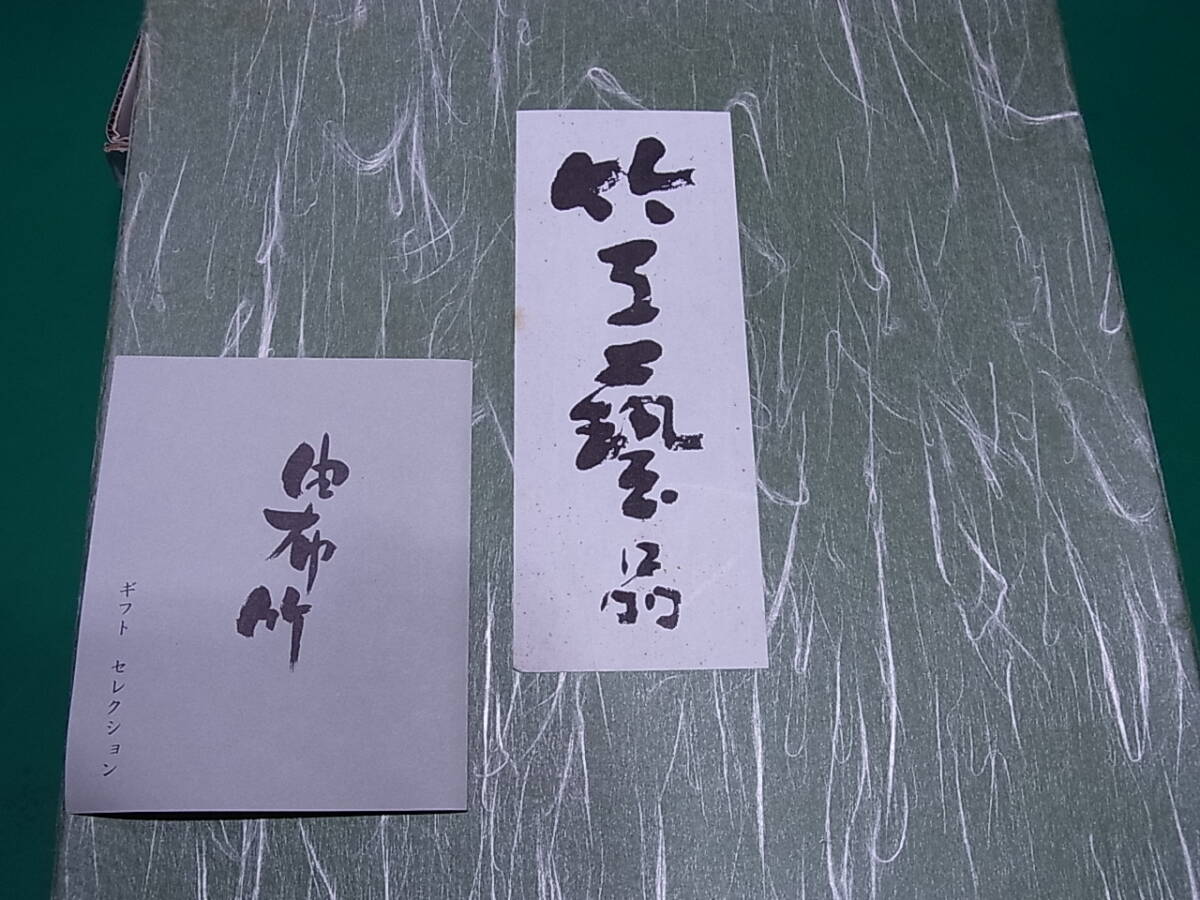 竹工藝品
由布竹
ギフト セレクション